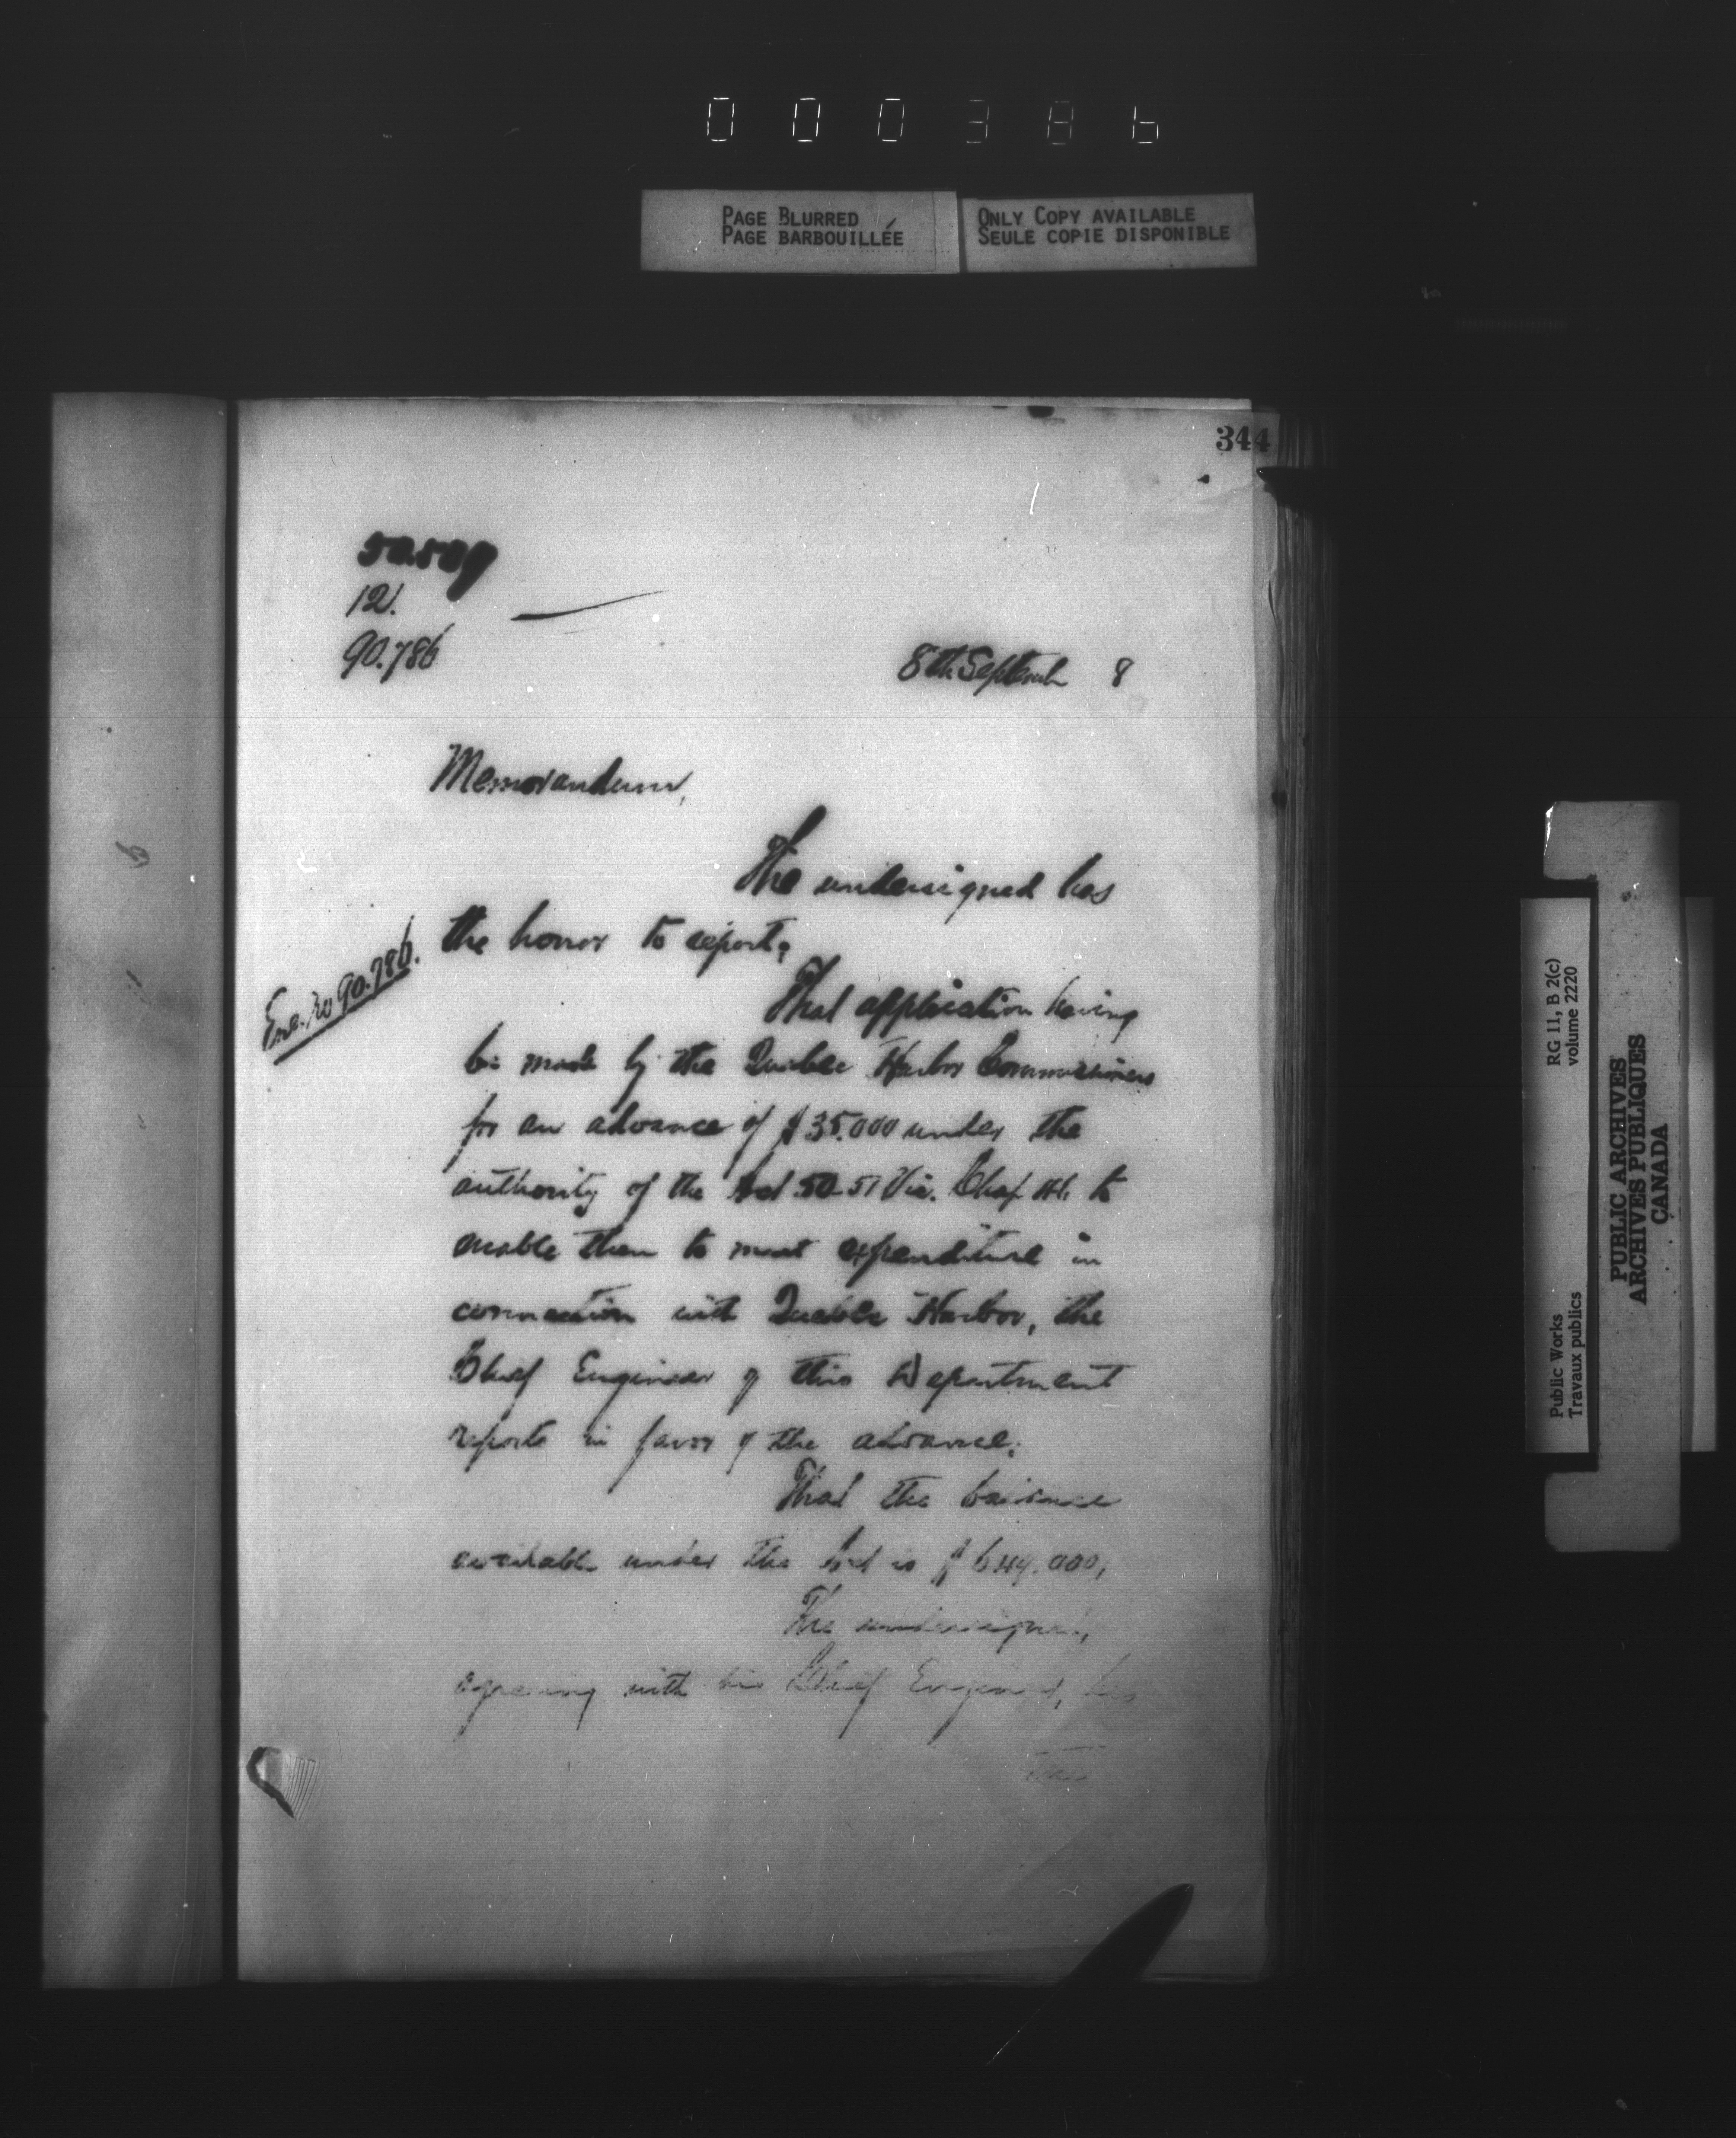 000386
PAGE BLURRED
PAGE BARBOUILLÉE
ONLY COPY AVAILABLE
SEULE COPIE DISPONIBLE
344
12.
90.786
8th Septemb 8
Memorandum,
The undersigned has
the honor to report;
Enc. No 90.786.
That application having
be made by the Quebec Harbor Commissioners
for an advance of $35.000 under the
authority of the Act 50-51 Vic. Chap 41. to
enable them to meet expenditure in
connection with Quebec Harbor, the
Chief Engineer of this Department
reports in favor of the advance;
That the balance
available under the Act is $
The undersigned,
agreeing with his Chief Engineer, has
RG 11, B 2(c)
volume 2220
Public Works
Travaux publics
PUBLIC ARCHIVES
ARCHIVES PUBLIQUES
CANADA